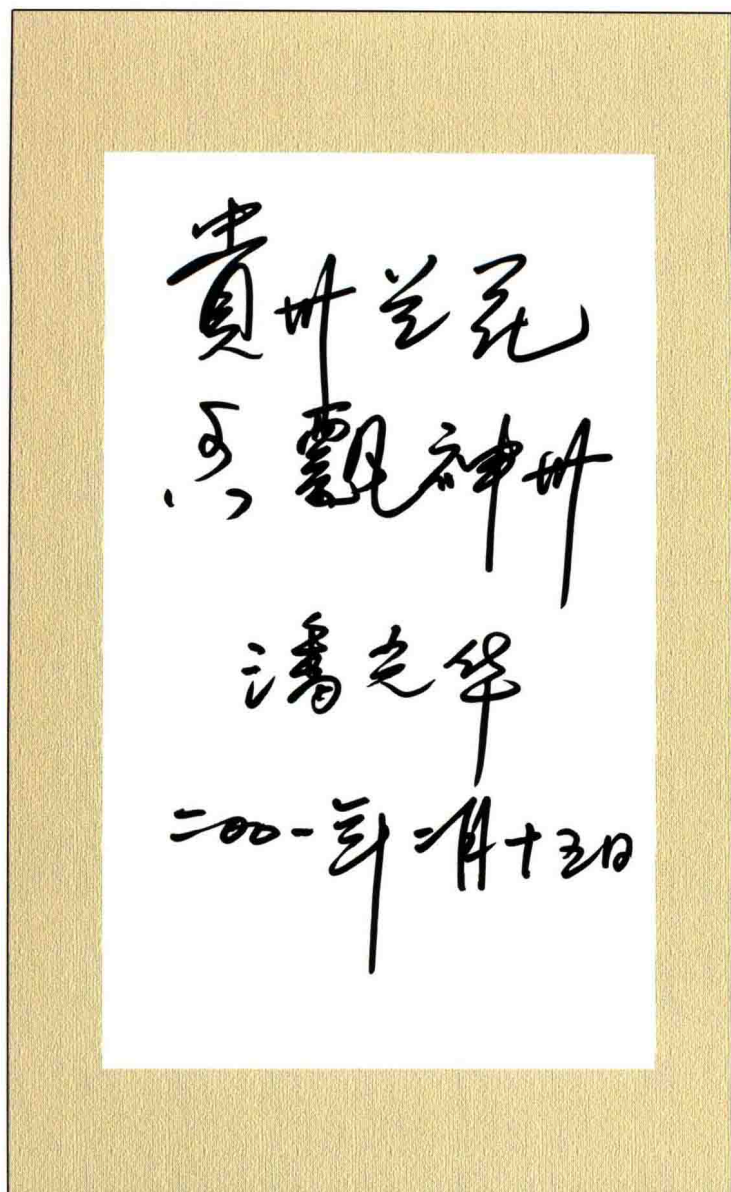 貴州兰花
香飄神州
潘光华
二00一年二月十五日